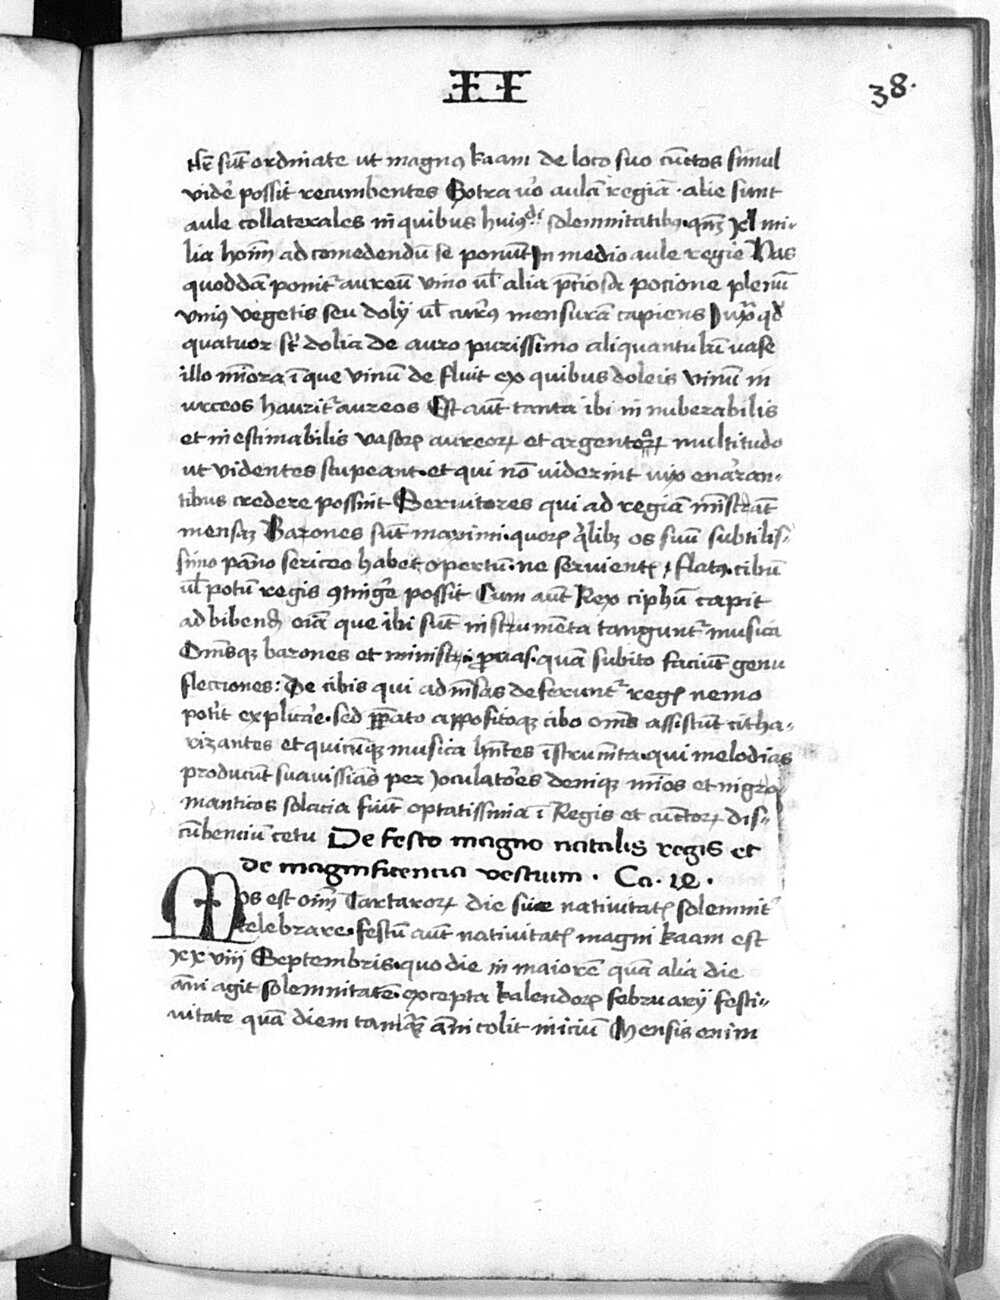 II
38.
sūt ordinate ut magnꝯ kaam de loco suo cūctos simul
videꝰ possit recumbentes Extra vͦo aulā regiā · alie sunt
aule collaterales in quibus huiꝰdi solemnitatibꝫ mi-
lia hoīm ad comedendū se ponūt In medio aule regie Vas
quoddā ponitᷣ aureū vino ul̄ alia p̄ciosa pocione plenū
vniꝰ vegetis seu dolij ul̄ mensurā capiens Iuxͣ qd̛
quatuor sᷣt dolia de auro purissimo aliquantulū vase
illo mīora ī que vinū de fluit ex quibus doleis vinū in
urceos hauritᷣ aureos Est aūt tanta ibi in nuberabilis
et inestimabilis vasorꝝ aureorꝝ et argentorꝝ multitudo
ut videntes stupeant · et qui nō viderint vix enarran-
tibus credere possint Servitores qui ad regiā mīstrāt
mensaꝫ Barones sūt maximi · quorꝝ q̄libꝫ os suū subtilis-
simo pāno sericeo habet opertū · ne servientꝭ flatꝯ cibū
ul̄ potū regis ꝯtingeꝰ possit Cum aūt Rex ciphū capit
ad bibend̛ oīa que ibi sūt instrumenta tanguntᷣ musica
Omēsqꝫ barones et ministri quā subito faciūt genu
flecciones: De cibis qui ad mēsas deferuntᷣ regꝭ nemo
potīt explicaꝰe · sed ꝑpato appositoqꝫ cibo omēs assistūt citha-
rizantes et quicūqꝫ musica hn̄tes īstrumēta · qui melodias
producūt suavissīas per Joculatoꝰes deniqꝫ mīos et nigro
manticos solacia fiūt optatissima ī Regis et cūctorꝝ dis-
cūbenciū cetu De festo magno natalis regis et
de magnificencia vestium · Ca · 12 ·
Mos est oīm Tartarorꝝ die sue nativitatꝭ solemnitᷣ
celebrare · festū aūt nativitatꝭ magni kaam est
xxviij Septembris · quo die in maiorē quā alia die
āni agit solemnitatē · excepta kalendorꝝ februarij festi-
vitate quā diem tanqͣꝫ āni colit iniciū Mensis enim